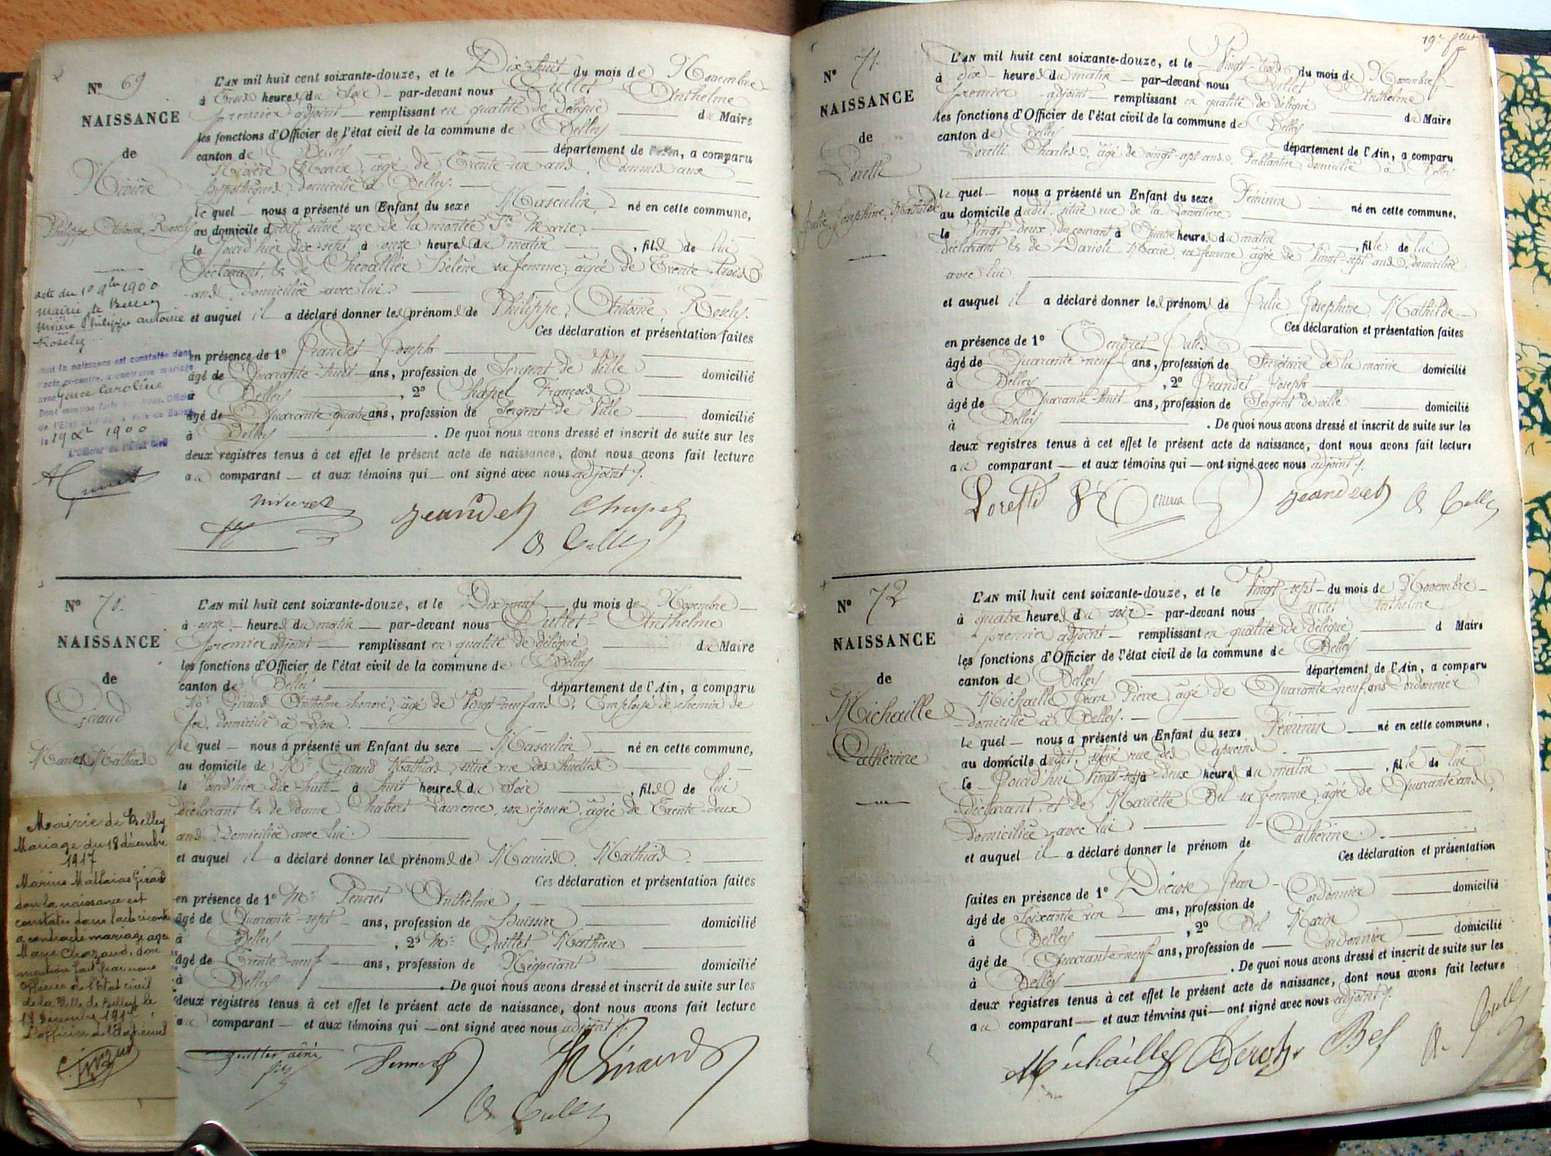 Nº 69
NAISSANCE
de
Philippe Antoine Rosely
acte du 10 9bre 1900
mairie de Belley
Philippe antoine
Rosely
19 1900
L'Officier de l'Etat Civil
L'AN mil huit cent soixante-douze, et le Dix-huit du mois de Novembre
à heures du soir par-devant nous Anthelme
premier adjoint remplissant en qualité de délégué de Maire
les fonctions d'Officier de l'état civil de la commune de Belley
canton de Belley département de l'Ain, a comparu
âgé de Trente
hypothèques domicilié à Belley.
le quel nous a présenté un Enfant du sexe Masculin né en cette commune,
au domicile situé rue de la
le jourd'hui dix-sept à onze heures du matin , fils de lui
déclarant, & de Hélène sa femme, âgée de Trente trois
ans, domiciliée avec lui.
et auquel il a déclaré donner les prénoms de Philippe, Antoine, Rosely
Ces déclaration et présentation faites
en présence de 1º Jeandet Joseph
âgé de Quarante-huit ans, profession de Sergent de Ville domicilié
à Belley , 2º Chapel François
âgé de Quarante quatre ans, profession de Sergent de Ville domicilié
à Belley . De quoi nous avons dressé et inscrit de suite sur les
deux registres tenus à cet effet le présent acte de naissance, dont nous avons fait lecture
au comparant et aux témoins qui ont signé avec nous adjoint.
Jeandet Chapel
Nº 70.
NAISSANCE
de
Giraud
Marius Mathias
Mairie de Belley
Mariage du 18 décembre
1917
Marius Mathias Giraud
dont la naissance est
constatée dans l'acte ci-contre
a contracté mariage avec
Marie Chazaud, dont
mention fait par nous
officier de l'état civil
de la Ville de Belley le
L'officier de l'état civil
L'AN mil huit cent soixante-douze, et le Dix-neuf du mois de Novembre
à onze heures du matin par-devant nous Anthelme
premier adjoint remplissant en qualité de délégué de Maire
les fonctions d'Officier de l'état civil de la commune de Belley
canton de Belley département de l'Ain, a comparu
Mr Giraud Anthelme Honoré, âgé de Vingt-neuf ans, Employé de chemin de
fer, domicilié à Lyon.
le quel nous a présenté un Enfant du sexe Masculin né en cette commune,
au domicile de Mr Giraud Mathias, situé rue des
le jourd'hier dix-huit à huit heures du soir , fils de lui
déclarant & de dame Chabert Laurence, son épouse, âgée de Trente-deux
ans, domiciliée avec lui.
et auquel il a déclaré donner les prénoms de Marius, Mathias.
Ces déclaration et présentation faites
en présence de 1º Mr Anthelme
âgé de Quarante-sept ans, profession de huissier domicilié
à Belley , 2º Mr Mathieu
âgé de Trente-neuf ans, profession de Négociant domicilié
à Belley . De quoi nous avons dressé et inscrit de suite sur les
deux registres tenus à cet effet le présent acte de naissance, dont nous avons fait lecture
au comparant et aux témoins qui ont signé avec nous adjoint.
Giraud
Nº 71.
NAISSANCE
de
Loretti
Julie, Josephine, Mathilde
L'AN mil huit cent soixante-douze, et le Vingt-trois du mois de Novembre
à dix heures du matin par-devant nous Anthelme
premier adjoint remplissant en qualité de délégué de Maire
les fonctions d'Officier de l'état civil de la commune de Belley
canton de Belley département de l'Ain, a comparu
Loretti Charles, âgé de vingt-sept ans, Ferblantier domicilié à Belley
le quel nous a présenté un Enfant du sexe Féminin né en cette commune,
au domicile dudit, situé rue de la
le Vingt-deux du courant à Quatre heures du matin
déclarant & de Marie, sa femme, âgée de Vingt-sept ans, domiciliée , fille de lui
avec lui
et auquel il a déclaré donner les prénoms de Julie Josephine Mathilde
Ces déclaration et présentation faites
en présence de 1º Jules
âgé de Quarante-neuf ans, profession de Secrétaire de la mairie domicilié
à Belley , 2º Jeandet Joseph
âgé de Quarante-huit ans, profession de Sergent de ville domicilié
à Belley . De quoi nous avons dressé et inscrit de suite sur les
deux registres tenus à cet effet le présent acte de naissance, dont nous avons fait lecture
au comparant et aux témoins qui ont signé avec nous adjoint.
Loretti Jeandet
Nº 72
NAISSANCE
de
Michaille
Catherine
L'AN mil huit cent soixante-douze, et le Vingt-sept du mois de Novembre
à quatre heures du soir par-devant nous Anthelme
premier adjoint remplissant en qualité de délégué d Maire
les fonctions d'Officier de l'état civil de la commune de Belley
canton de Belley département de l'Ain, a comparu
Michaille Jean Pierre âgé de Quarante-neuf ans Cordonnier
domicilié à Belley.
le quel nous a présenté un Enfant du sexe Féminin né en cette commune,
au domicile dudit, situé rue des Capucins
le jourd'hui Vingt-sept à deux heures du matin , fille de lui
déclarant et de Mariette Bel sa femme, âgée de Quarante ans,
domiciliée avec lui
et auquel il a déclaré donner le prénom de Catherine
Ces déclaration et présentation
faites en présence de 1º Jean Cordonnier
âgé de Soixante-un ans, profession de domicilié
à Belley , 2º Bel
âgé de Quarante-neuf ans, profession de Cordonnier domicilié
à Belley . De quoi nous avons dressé et inscrit de suite sur les
deux registres tenus à cet effet le présent acte de naissance, dont nous avons fait lecture
au comparant et aux témoins qui ont signé avec nous adjoint.
Michaille Bel